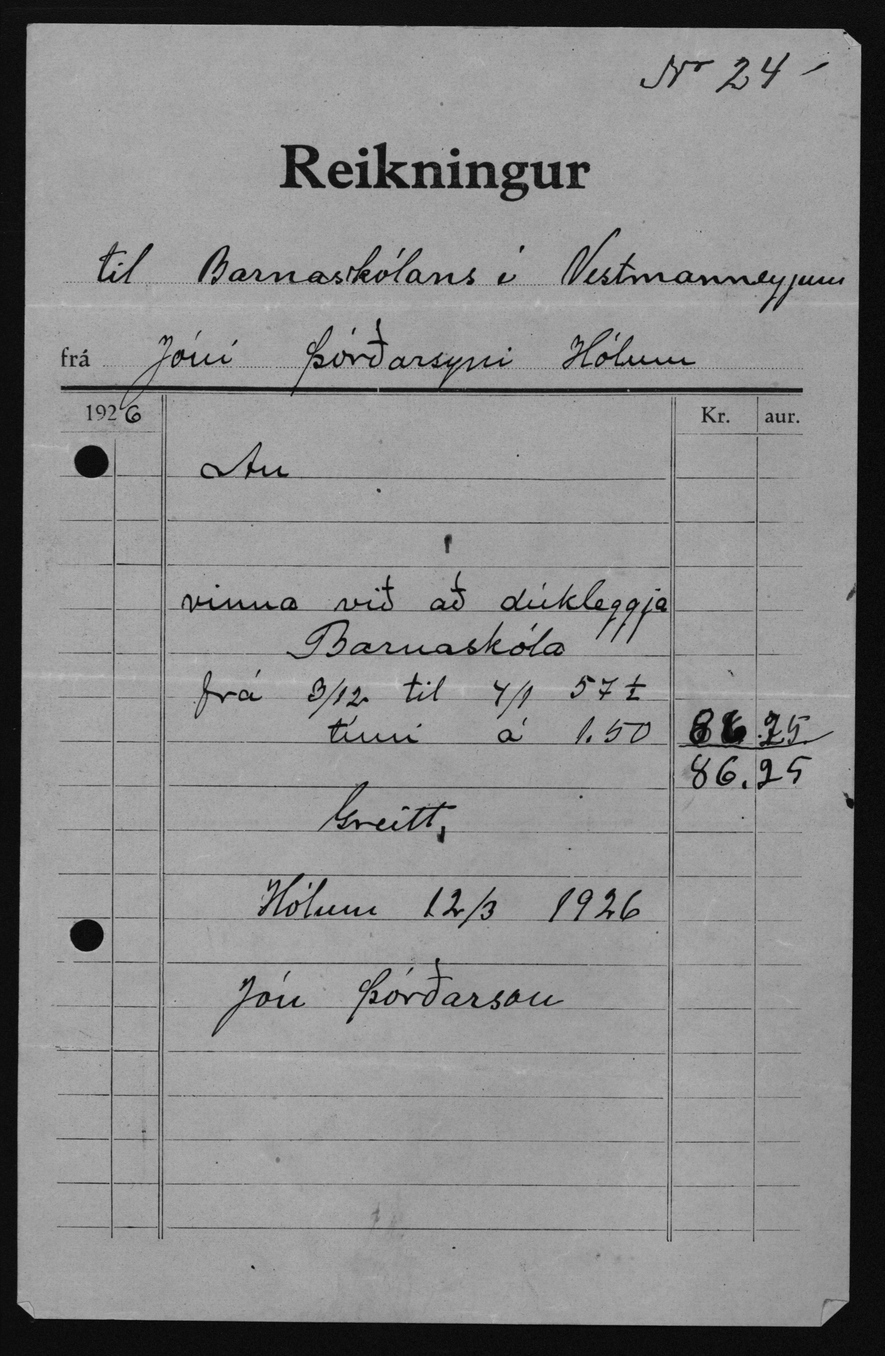 Nr 24 -
Reikningur
til Barnaskólans í Vestmanneyjum
frá Jóni Þórðarsyni Hólum
1926 Kr. aur.
An
vinna við að dúkleggja
Barnaskóla
frá 3/12 til 4/1 57 ½
tími á 1.50 86.25
86.25
Greitt,
Hólum 12/3 1926
Jón Þórðarson